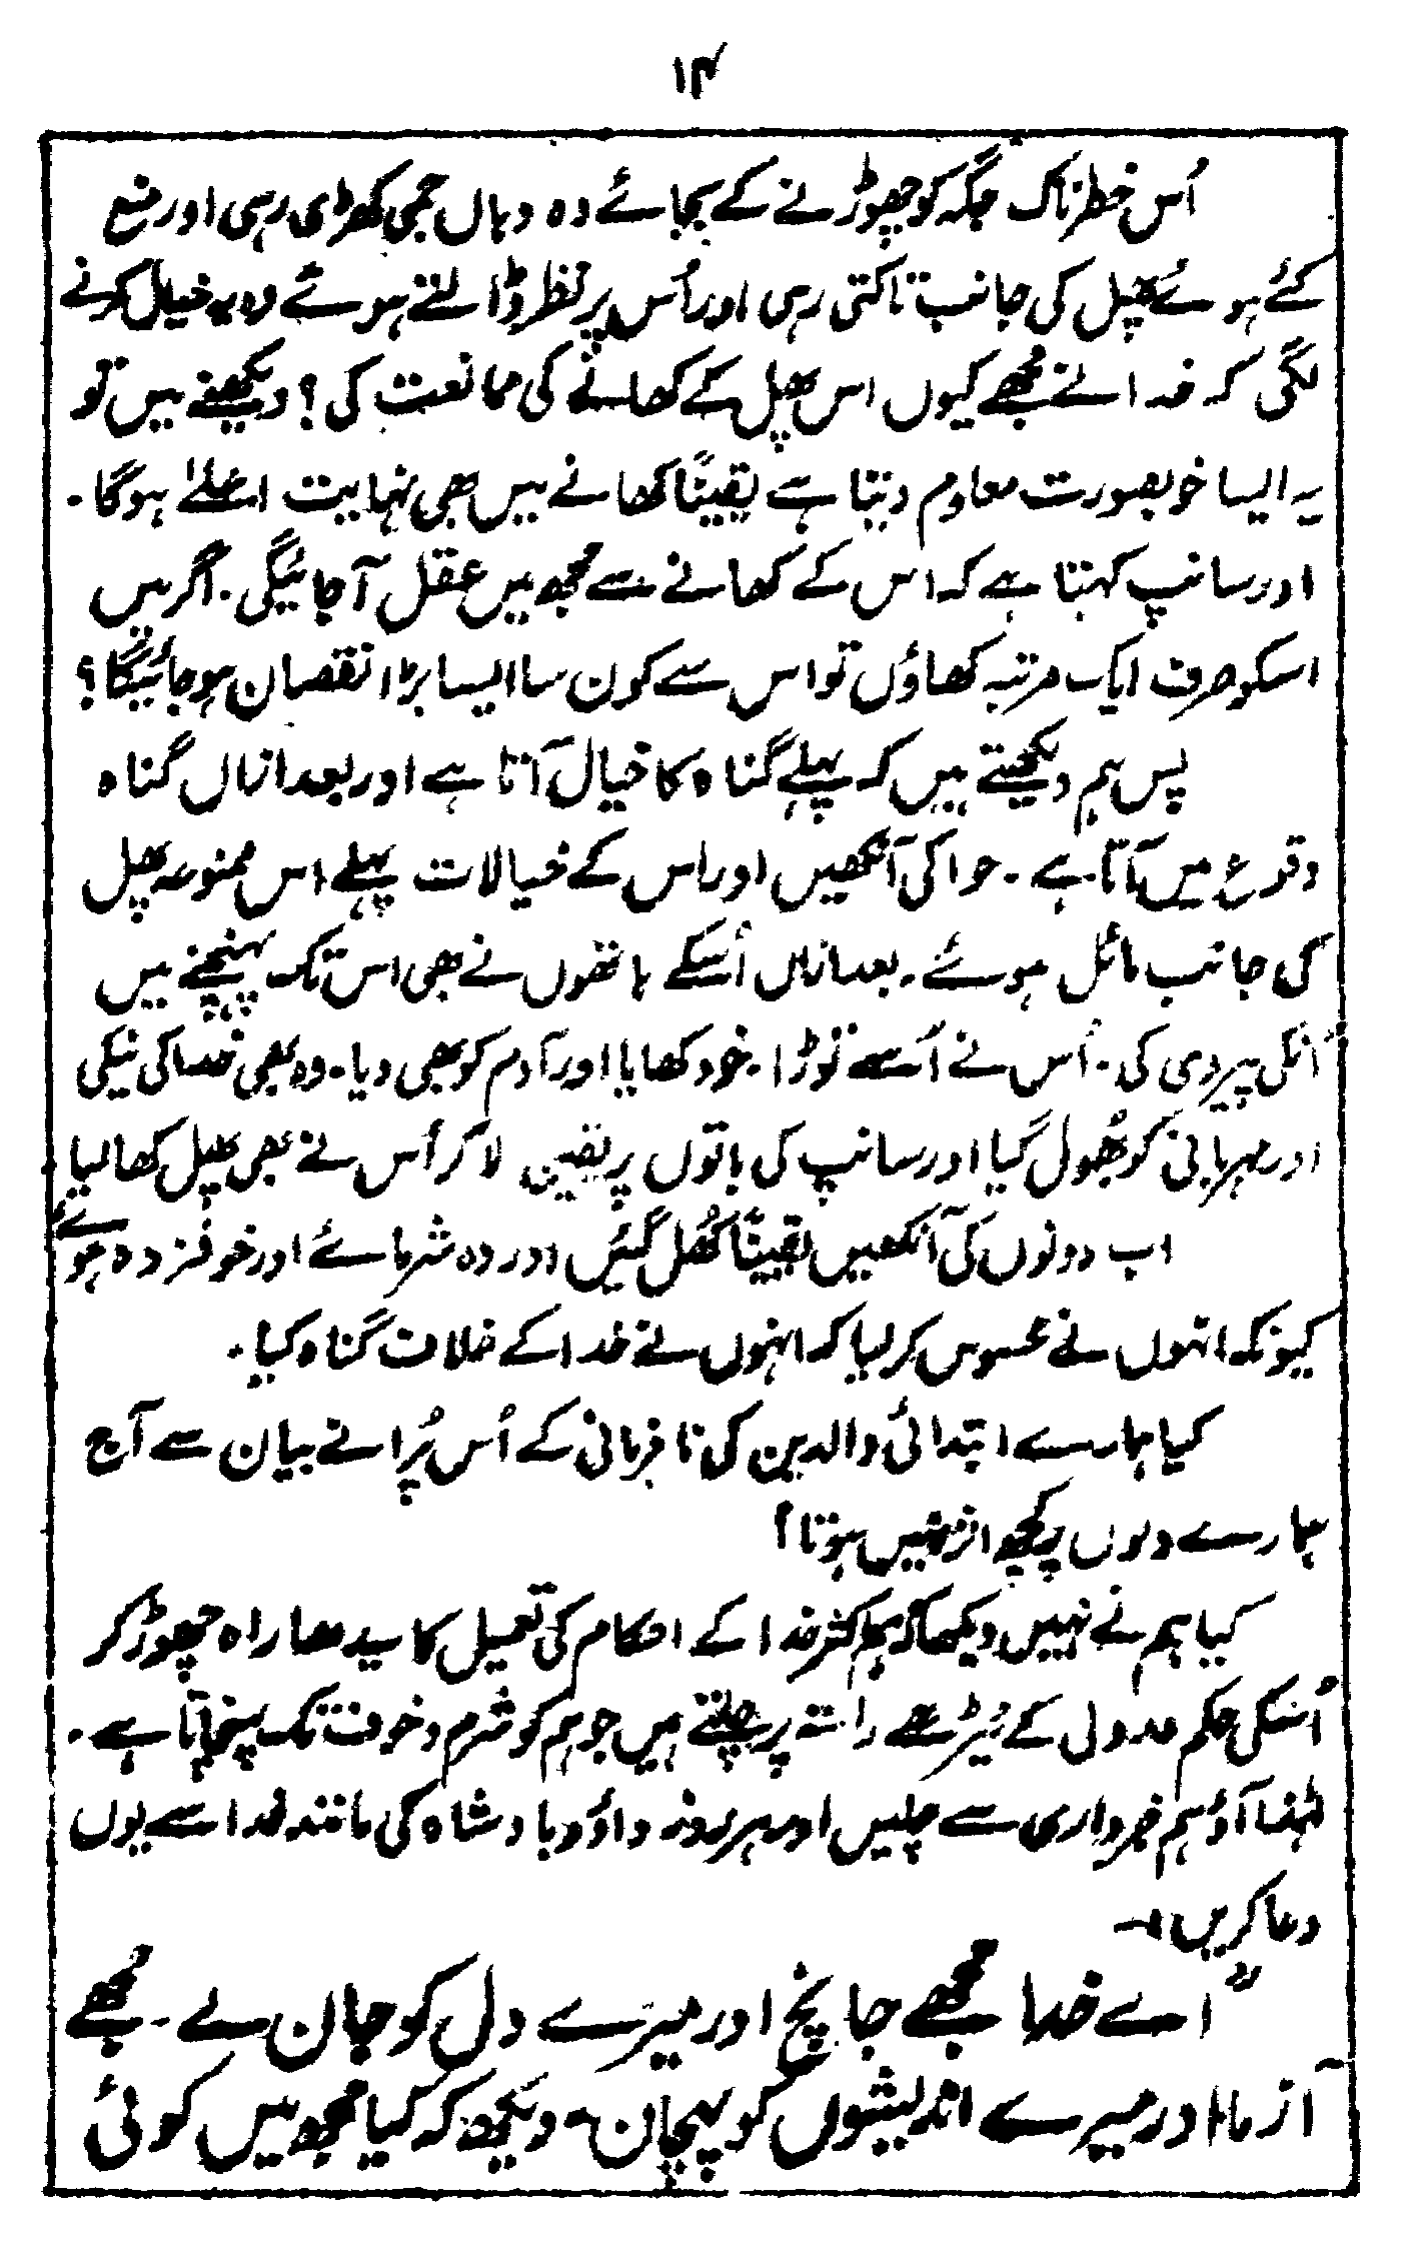 ۱۴
اُس خطرناک جگہ کو چھوڑنے کے بجائے وہ وہاں جمی کھڑی رہی اور منع
کئے ہوئے پھل کی جانب تاکتی رہی اور اُس پر نظر ڈالتے ہوئے وہ یہ خیال کرنے
لگی کہ خدا نے مجھے کیوں اس پھل کے کھانے کی ممانعت کی؟ دیکھنے میں تو
یہ ایسا خوبصورت معلوم دیتا ہے یقیناً کھانے میں بھی نہایت اعلےٰ ہوگا۔
اور سانپ کہتا ہے کہ اس کے کھانے سے مجھ میں عقل آجائیگی۔ اگر میں
اسکو صرف ایک مرتبہ کھاؤں تو اس سے کون سا ایسا بڑا نقصان ہو جائیگا؟
پس ہم دیکھتے ہیں کہ پہلے گناہ کا خیال آتا ہے اور بعد ازاں گناہ
وقوع میں آتا ہے۔ حوا کی آنکھیں اور اس کے خیالات پہلے اس ممنوعہ پھل
کی جانب مائل ہوئے۔ بعد ازاں اُسکے ہاتھوں نے بھی اس تک پہنچنے میں
اُنکی پیروی کی۔ اُس نے اُسے توڑا۔ خود کھایا اور آدم کو بھی دیا۔ وہ بھی خدا کی نیکی
اور مہربانی کو بُھول گیا اور سانپ کی باتوں پر یقین لا کر اُس نے بھی پھل کھا لیا
اب دونوں کی آنکھیں یقیناً کُھل گئیں اور وہ شرمائے اور خوفزدہ ہوئے
کیونکہ انہوں نے محسوس کر لیا کہ انہوں نے خدا کے خلاف گناہ کیا۔
کیا ہمارے ابتدائی والدین کی نافرمانی کے اُس پُرانے بیان سے آج
ہمارے دلوں پر کچھ اثر نہیں ہوتا؟
کیا ہم نے نہیں دیکھا کہ ہم اکثر خدا کے احکام کی تعمیل کا سیدھا راہ چھوڑ کر
اُسکی حکم عدولی کے ٹیڑھے راستہ پر چلتے ہیں جو ہم کو شرم و خوف تک پہنچاتا ہے۔
لہٰذا آؤ ہم خبرداری سے چلیں اور ہر روز داؤد بادشاہ کی مانند خدا سے یوں
دعا کریں:۔
"اے خدا مجھے جانچ اور میرے دل کو جان لے۔ مُجھے
آزما اور میرے اندیشوں کو پہچان۔ دیکھ کہ کیا مجھ میں کوئی